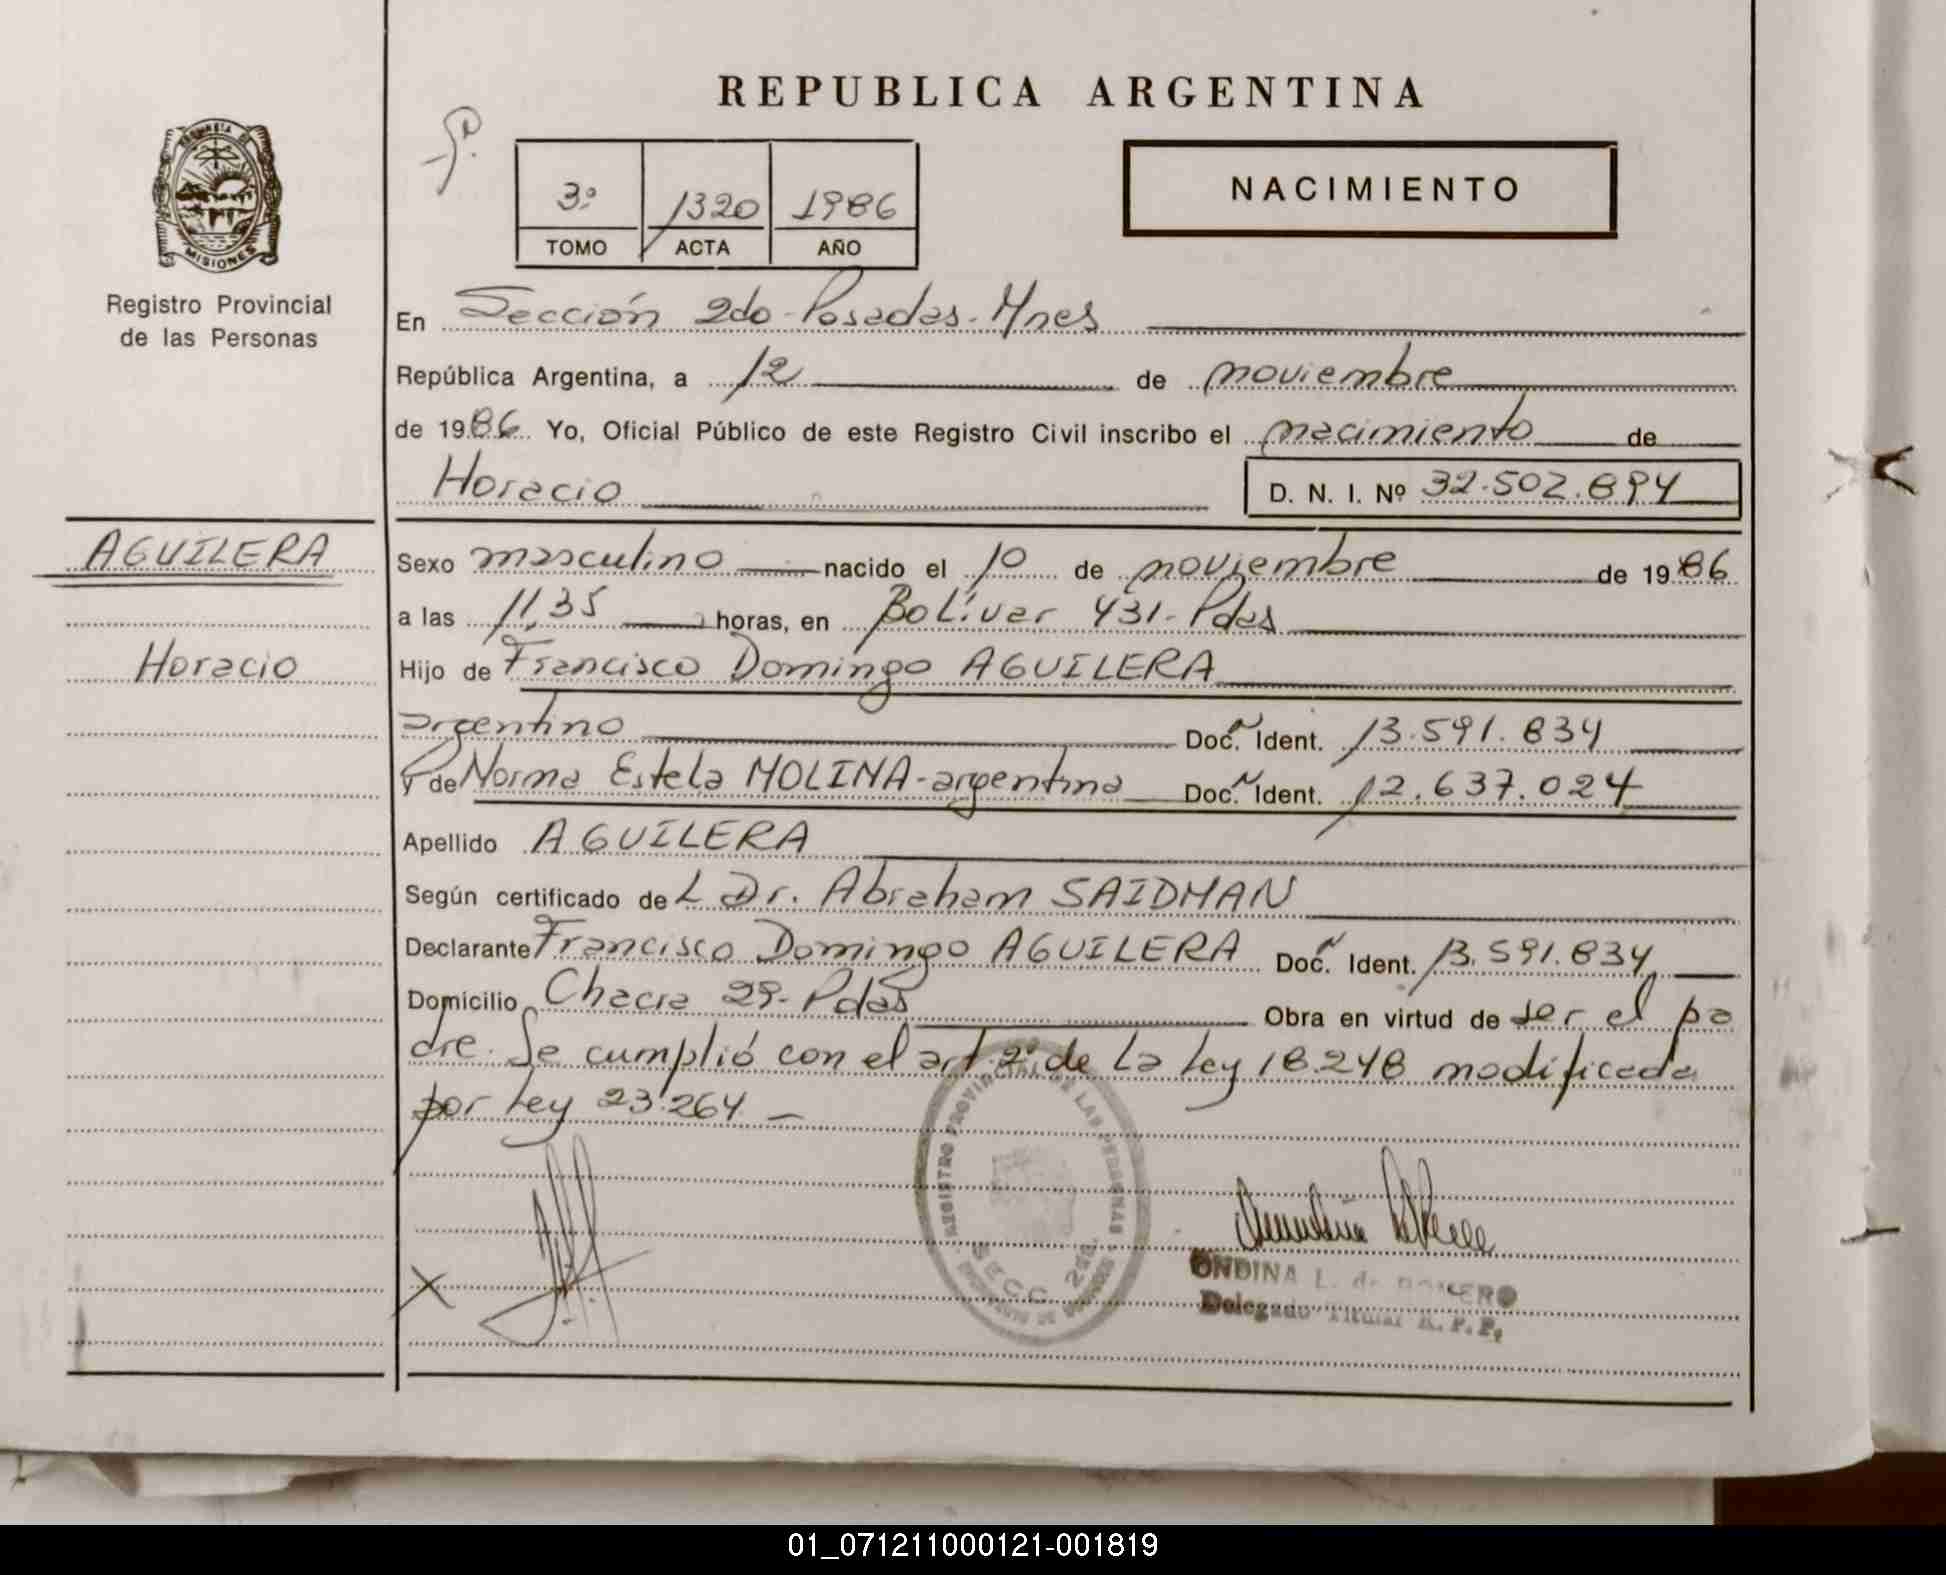 REPUBLICA ARGENTINA
MISIONES
Registro Provincial
de las Personas
3º 1320 1986
TOMO ACTA AÑO
NACIMIENTO
En Sección 2do-Posadas-Mnes
República Argentina, a 12 de noviembre
de 1986 Yo, Oficial Público de este Registro Civil inscribo el nacimiento de
Horacio D. N. I. Nº 32.502.894
AGUILERA
Horacio
Sexo masculino nacido el 10 de noviembre de 1986
a las 11,35 horas, en Bolívar 431-Pdas
Hijo de Francisco Domingo AGUILERA
argentino Doc. Ident. 13.591.834
y de Norma Estela MOLINA-argentina Doc. Ident. 12.637.024
Apellido AGUILERA
Según certificado de L Dr. Abraham SAIDMAN
Declarante Francisco Domingo AGUILERA Doc. Ident. 13.591.834
Domicilio Chacra 29-Pdas Obra en virtud de ser el pa
dre. Se cumplió con el art 2º de La Ley 18.248 modificada
por Ley 23.264 —
REGISTRO PROVINCIAL DE LAS PERSONAS
SECC. 2da.
ONDINA L. de ROMERO
Delegado Titular R. P. P.
01_071211000121-001819